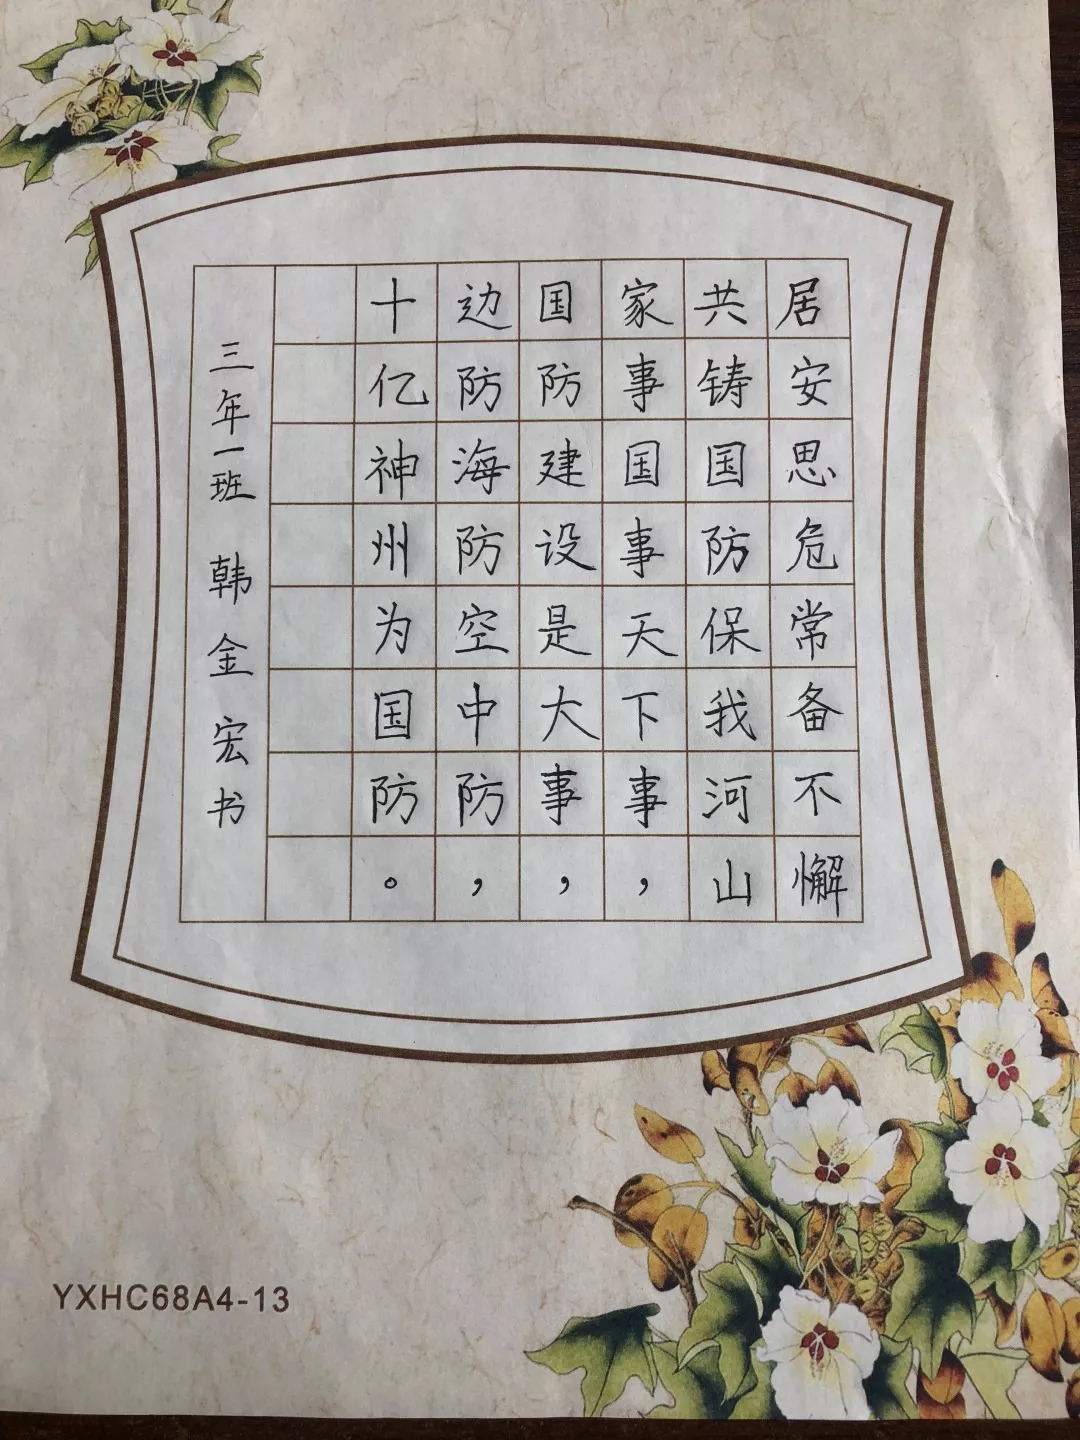 居安思危常备不懈
共铸国防保我河山
家事国事天下事，
国防建设是大事，
边防海防空中防，
十亿神州为国防。
三年一班 韩金宏书
YXHC68A4-13